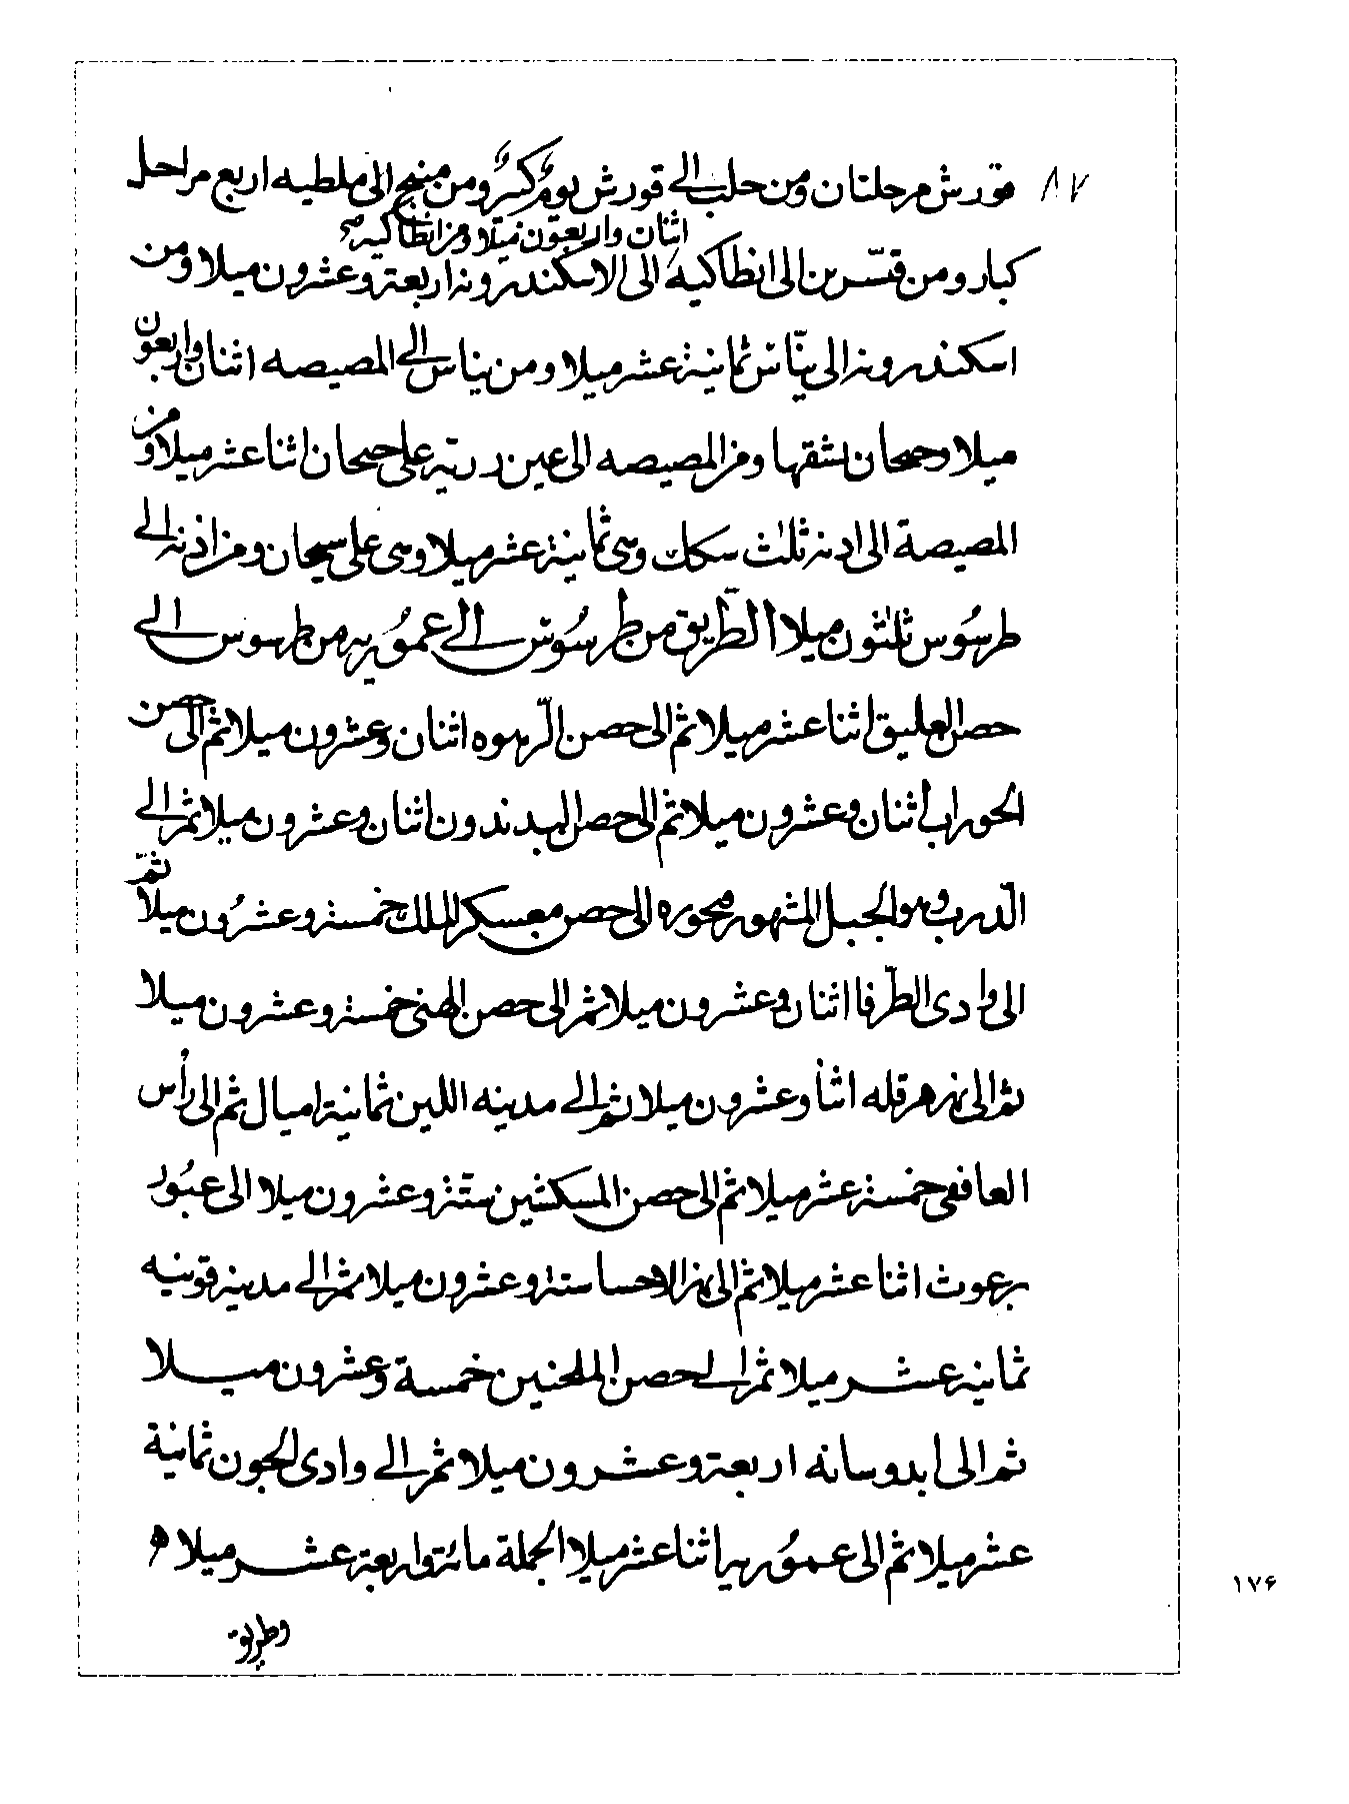 ٨٧
قورش مرحلتان ومن حلب الى قورش يوم كبير ومن منبج الى ملطيه اربع مراحل
اثنان واربعون ميلا ومن انطاكيه صح
كبار ومن قنّسرين الى انطاكيه الى الاسكندرونه اربعة وعشرون ميلا ومن
اسكندرونه الى بيّاس ثمانية عشر ميلا ومن بياس الى المصيصه اثنان واربعون
ميلا وجيحان يشقها ومن المصيصه الى عين زربيه على جيحان اثنا عشر ميلا ومن
المصيصة الى ادنه ثلث سكك وهى ثمانية عشر ميلا وهى على سيحان ومن اذنه الى
طرسُوس ثلثون ميلا الطّريق من طرسُوس الى عمُوريه من طرسوس الى
حصن العليق اثنا عشر ميلا ثم الى حصن الرّهوه اثنان وعشرون ميلا ثم الى حصن
الجوراب اثنان وعشرون ميلا ثم الى حصن البدندون اثنان وعشرون ميلا ثم الى
الدّرب وهو الجبل المشهور محوره الى حصن معسكر الملك خمسة وعشرُون ميلا ثمّ
الى وادى الطّرفا اثنان وعشرون ميلا ثم الى حصن الهنى خمسة وعشرون ميلا
ثم الى نهر هرقله اثنا وعشرون ميلا ثم الى مدينه اللبن ثمانية اميال ثم الى رأس
العافقى خمسة عشر ميلا ثم الى حصن المسكنين ستّة وعشرون ميلا الى عبُور
برعوث اثنا عشر ميلا ثم الى نهر الاحسا ستة وعشرون ميلا ثم الى مدينة قونيه
ثمانيه عشر ميلا ثم الى حصن الملحنين خمسة وعشرون ميلا
ثم الى ابدوسانه اربعة وعشرون ميلا ثم الى وادى الجون ثمانية
عشر ميلا ثم الى عموريه اثنا عشر ميلا الجملة مائة واربعة عشر ميلا ه
وطريق
١٧۶